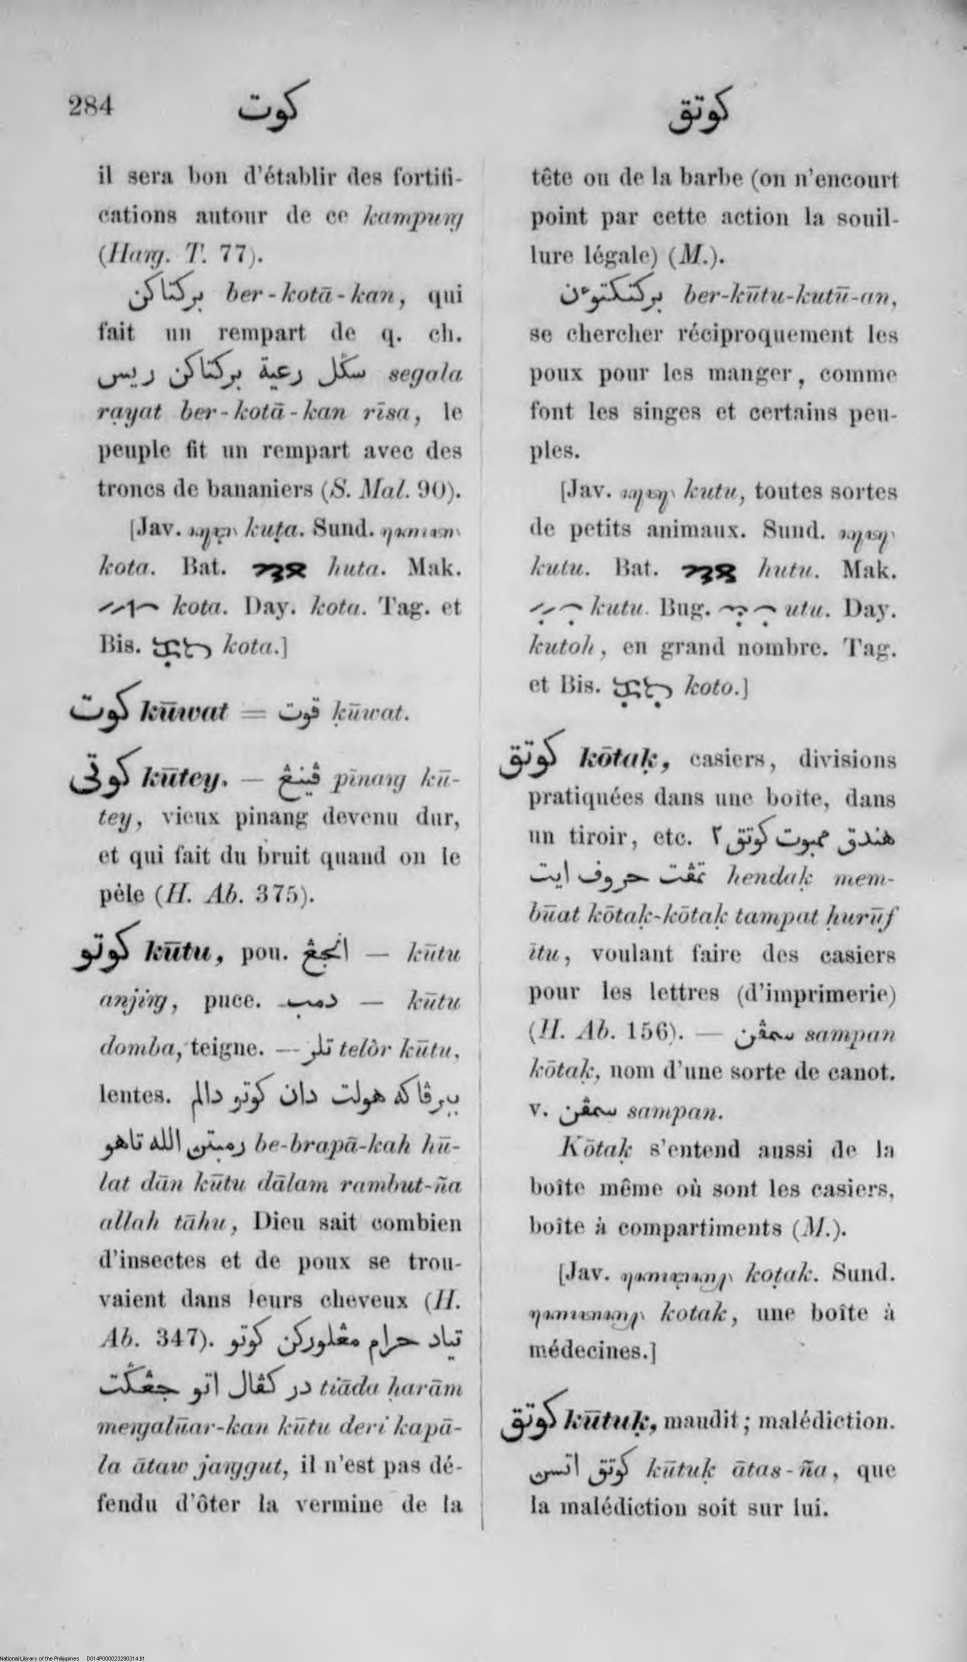 284
كوت
كوتق
il sera bon d'établir des fortifi-
cations autour de ce kampuṃg
(Haṃg. T. 77).
بركتاكن ber-kotā-kan, qui
fait un rempart de q. ch.
سڬل رعية بركتاكن ريس segala
rayat ber-kotā-kan rīsa, le
peuple fit un rempart avec des
troncs de bananiers (S. Mal. 90).
[Jav. kuṭa. Sund.
kota. Bat. huta. Mak.
kota. Day. kota. Tag. et
Bis. kota.]
كوت kūwat = قوت ḳūwat.
كوتي kūtey. — ڤينڠ pīnaṃg kū-
tey, vieux pinang devenu dur,
et qui fait du bruit quand on le
pèle (H. Ab. 375).
كوتو kūtu, pou. انجڠ — kūtu
anjiṃg, puce. دمب — kūtu
domba, teigne. — تلر telòr kūtu,
lentes. ببرڤاكه هولت دان كوتو دالم
رمبتن الله تاهو be-brapā-kah hū-
lat dān kūtu dālam rambut-ña
allah tāhu, Dieu sait combien
d'insectes et de poux se trou-
vaient dans leurs cheveux (H.
Ab. 347). تياد حرام مڠلوركن كوتو
در كڤال اتو جڠڬت tiāda ḥarām
meṃgalūar-kan kūtu deri kapā-
la ātaw jaṃggut, il n'est pas dé-
fendu d'ôter la vermine de la
tête ou de la barbe (on n'encourt
point par cette action la souil-
lure légale) (M.).
بركتكتوءن ber-kūtu-kutū-an,
se chercher réciproquement les
poux pour les manger, comme
font les singes et certains peu-
ples.
[Jav. kutu, toutes sortes
de petits animaux. Sund.
kutu. Bat. hutu. Mak.
kutu. Bug. utu. Day.
kutoh, en grand nombre. Tag.
et Bis. koto.]
كوتق kōtaḳ, casiers, divisions
pratiquées dans une boîte, dans
un tiroir, etc. هندق ممبوت كوتق ٢
تمڤت حروف ايت hendaḳ mem-
būat kōtaḳ-kōtaḳ tampat ḥurūf
ītu, voulant faire des casiers
pour les lettres (d'imprimerie)
(H. Ab. 156). — سمڤن sampan
kōtaḳ, nom d'une sorte de canot.
v. سمڤن sampan.
Kōtaḳ s'entend aussi de la
boîte même où sont les casiers,
boîte à compartiments (M.).
[Jav. koṭak. Sund.
kotak, une boîte à
médecines.]
كوتق kūtuḳ, maudit; malédiction.
كوتق اتسن kūtuḳ ātas-ña, que
la malédiction soit sur lui.
National Library of the Philippines